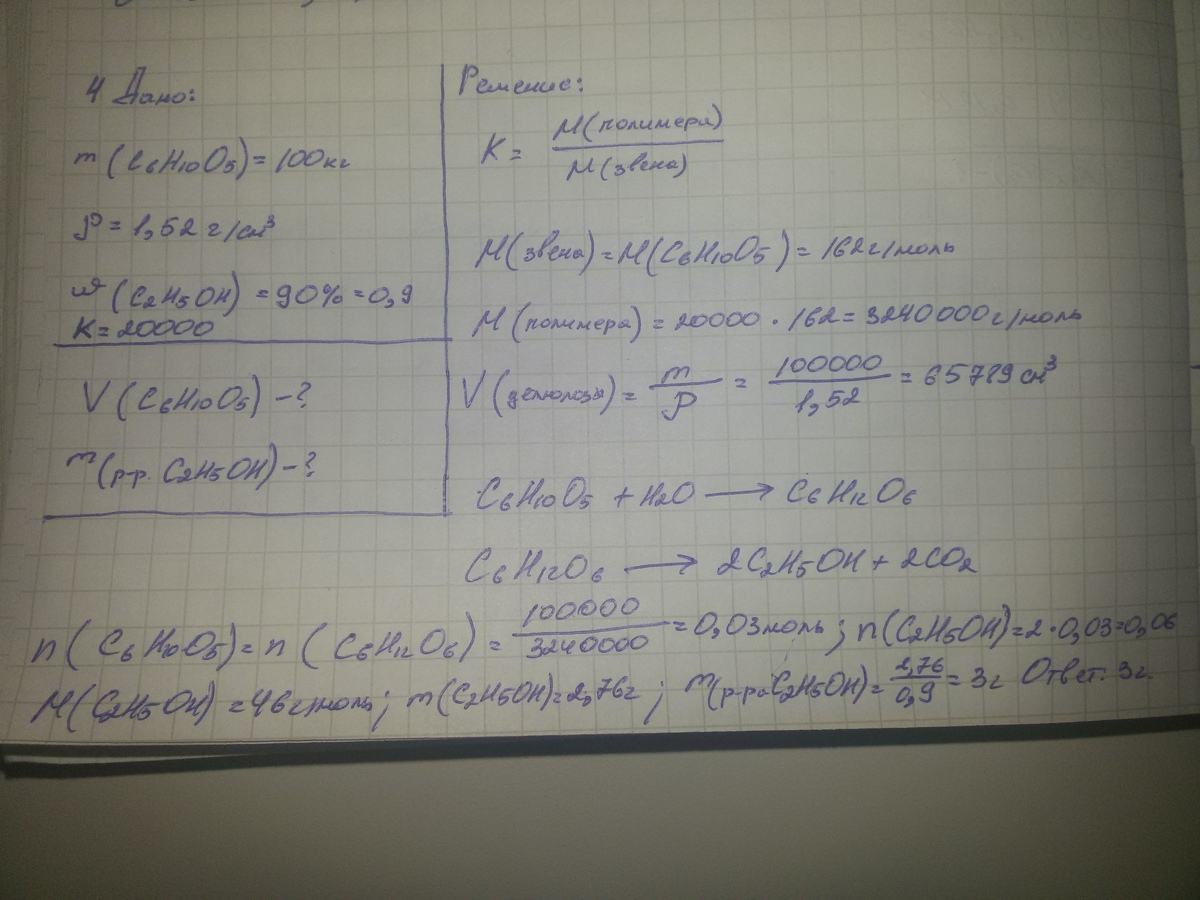 4 Дано:
m (C6H10O5) = 100 кг
ρ = 1,52 г/см³
ω (C2H5OH) = 90% = 0,9
K = 20000
V (C6H10O5) – ?
m (р-р. C2H5OH) – ?
Решение:
K = M(полимера) / M(звена)
M(звена) = M(C6H10O5) = 162 г/моль
M (полимера) = 20000 · 162 = 3240000 г/моль
V (целюлозы) = m / ρ = 100000 / 1,52 = 65789 см³
C6H10O5 + H2O ⟶ C6H12O6
C6H12O6 ⟶ 2C2H5OH + 2CO2
n ( C6H10O5) = n ( C6H12O6) = 100000 / 3240000 = 0,03 моль ; n(C2H5OH) = 2 · 0,03 = 0,06
M(C2H5OH) = 46 г/моль ; m(C2H5OH) = 2,76 г ; m(р-ра C2H5OH) = 2,76 / 0,9 = 3 г Ответ: 3 г.